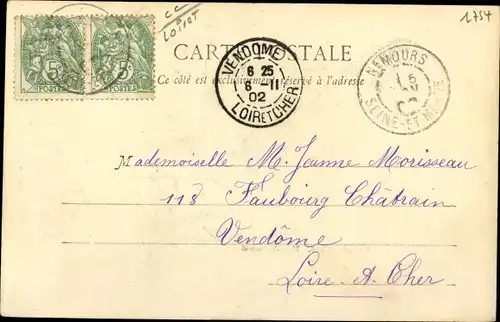 cc
Loiret
1754
CARTE POSTALE
Ce côté est exclusivement réservé à l'adresse
5 5
POSTES POSTES
VENDOME
6 25
6 - 11
02
LOIR ET CHER
NEMOURS
SEINE-ET-MARNE
Mademoiselle M. Jeanne Morisseau
118 Faubourg Châtrain
Vendôme
Loire-A-Cher